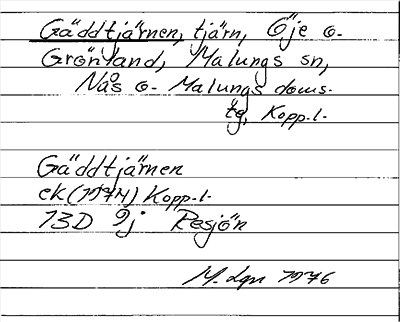 Gäddtjärnen, tjärn, Öje o.
Grönland, Malungs sn,
Nås o. Malungs doms.
tg, Kopp.l.
Gäddtjärnen
ek (1974) Kopp.l.
13D 9j Resjön
M. 1976